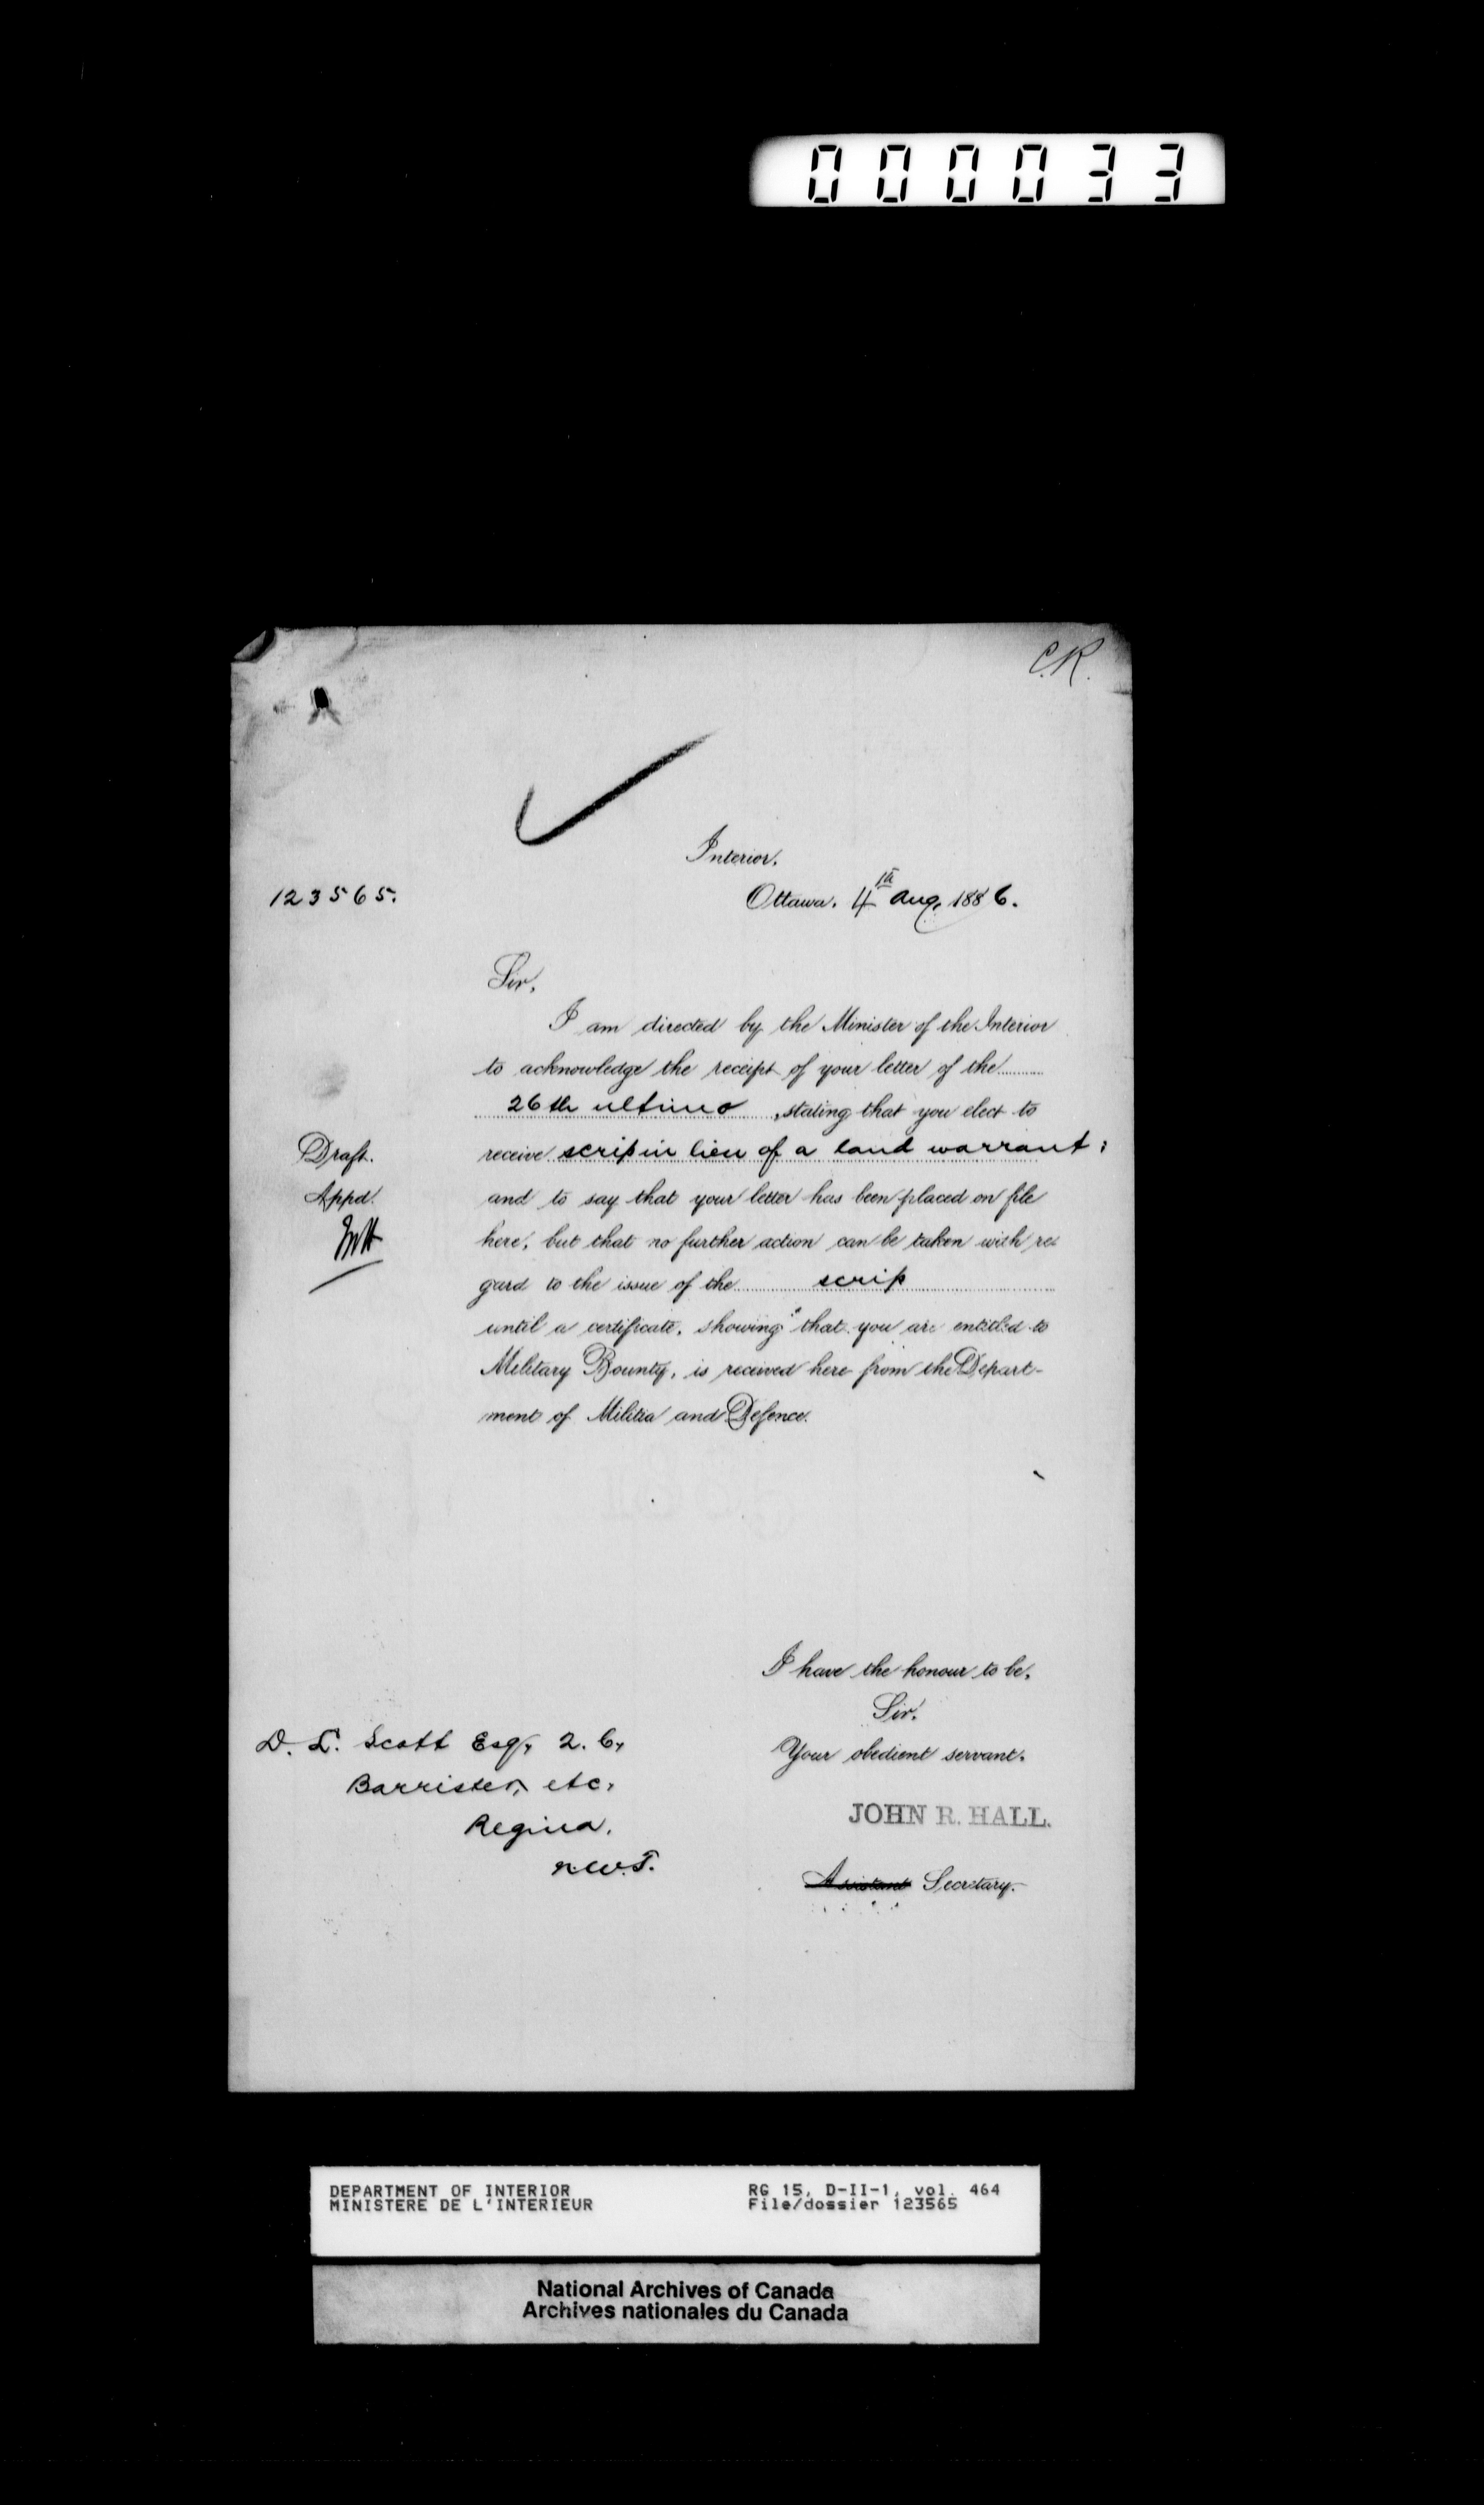 000033
C.R.
Interior.
123565.
Ottawa. 4th Aug. 1886.
Sir,
I am directed by the Minister of the Interior
to acknowledge the receipt of your letter of the
26th ultimo, stating that you elect to
Draft.
receive scrip in lieu of a land warrant;
Appd.
and to say that your letter has been placed on file
here, but that no further action can be taken with re-
gard to the issue of the scrip
until a certificate, showing that you are entitled to
Military Bounty, is received here from the Depart-
ment of Militia and Defence.
I have the honour to be,
Sir,
Your obedient servant.
JOHN R. HALL.
Assistant Secretary.
D. L. Scott Esq, Q. C,
Barrister, etc,
Regina,
N.W.T.
DEPARTMENT OF INTERIOR
MINISTERE DE L'INTERIEUR
RG 15, D-II-1, vol. 464
File/dossier 123565
National Archives of Canada
Archives nationales du Canada